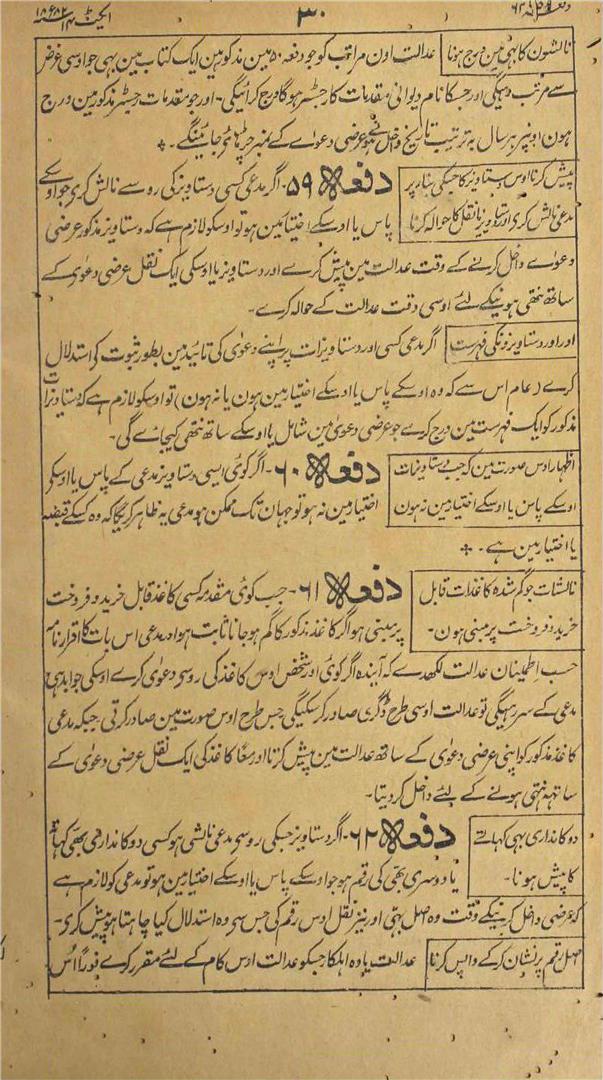 ایکٹ ۱۴ سنہ ۱۸۸۲ء
۳۰
نالشون کا بہی مین درج ہونا
عدالت اون مراتب کو جو دفعہ ۵۰ مین مذکور ہین ایک کتاب مین یہی جو اوسی غرض
سے مرتب رہیگی اور جسکا نام دیوانی مقدمات کا رجسٹر ہوگا درج کرائیگی۔ اور جو مقدمات رجسٹر مذکور مین درج
ہون اونپر ہر سال بہ ترتیب تاریخ داخل ہونے عرضی دعوے کے نمبر چڑہائے جائینگے۔
پیش کرنا اوس دستاویز کا جسکی بنا پر
مدعی نالش کرے اور دستاویز یا نقل کا حوالہ کرنا
دفعہ ۵۹۔ اگر مدعی کسی دستاویز کی رو سے نالش کرے جو اوسکے
پاس یا اوسکے اختیار مین ہو تو اوسکو لازم ہے کہ دستاویز مذکور عرضی
دعوے داخل کرنے کے وقت عدالت مین پیش کرے اور دستاویز یا اوسکی ایک نقل عرضی دعوی کے
ساتھ نتھی ہونیکے لئے اوسی وقت عدالت کے حوالہ کرے۔
اور اور دستاویزونکی فہرست
اگر مدعی کسی اور دستاویزات پر اپنے دعوی کی تائید مین بطور ثبوت کے استدلال
کرے (عام اس سے کہ وہ اوسکے پاس یا اوسکے اختیار مین ہون یا نہون) تو اوسکو لازم ہے کہ دستاویزات
مذکور کو ایک فہرست مین درج کرے جو عرضی دعوی مین شامل یا اوسکے ساتھ نتھی کیجائے گی۔
اظہار اوس صورت مین کہ جب دستاویزات
اوسکے پاس یا اوسکے اختیار مین نہون
دفعہ ۶۰۔ اگر کوئی ایسی دستاویز مدعی کے پاس یا اوسکے
اختیار مین نہ ہو تو جہان تک ممکن ہو مدعی یہ ظاہر کریگا کہ وہ کسکے قبضہ
یا اختیار مین ہے۔
نالشات جو گم شدہ کاغذات قابل
خرید و فروخت پر مبنی ہون۔
دفعہ ۶۱۔ جب کوئی مقدمہ کسی کاغذ قابل خرید و فروخت
پر مبنی ہو اگر کاغذ مذکور کا گم ہو جانا ثابت ہو اور مدعی اس بات کا اقرار نامہ
حسب اطمینان عدالت لکھدے کہ آیندہ اگر کوئی اور شخص اوس کاغذ کی رو سے دعوی کرے اوسکی جوابدہی
مدعی کے سر رہیگی تو عدالت اوسی طرح ڈگری صادر کرسکیگی جس طرح اوس صورت مین صادر کرتی جبکہ مدعی
کاغذ مذکور کو اپنی عرضی دعوی کے ساتھ عدالت مین پیش کرتا اور معًا کاغذ کی ایک نقل عرضی دعوی کے
ساتھہ نتھی ہونے کے لئے داخل کردیتا۔
دوکانداری بہی کہاتے
کا پیش ہونا۔
دفعہ ۶۲۔ اگر دستاویز جسکی رو سے مدعی نالشی ہو کسی دوکانداری بھی کہاتے
یا دوسری بھی کی رقم ہو جو اوسکے پاس یا اوسکے اختیار مین ہو تو مدعی کو لازم ہے
کہ عرضی داخل کرنیکے وقت وہ اصل بھی اور نیز نقل اوس رقم کی جس سے وہ استدلال کیا چاہتا ہو پیش کرے۔
اصل رقم پر نشان کرکے واپس کرنا
عدالت یا وہ اہلکار جسکو عدالت اوس کام کے لئے مقرر کرے فوراً اُس